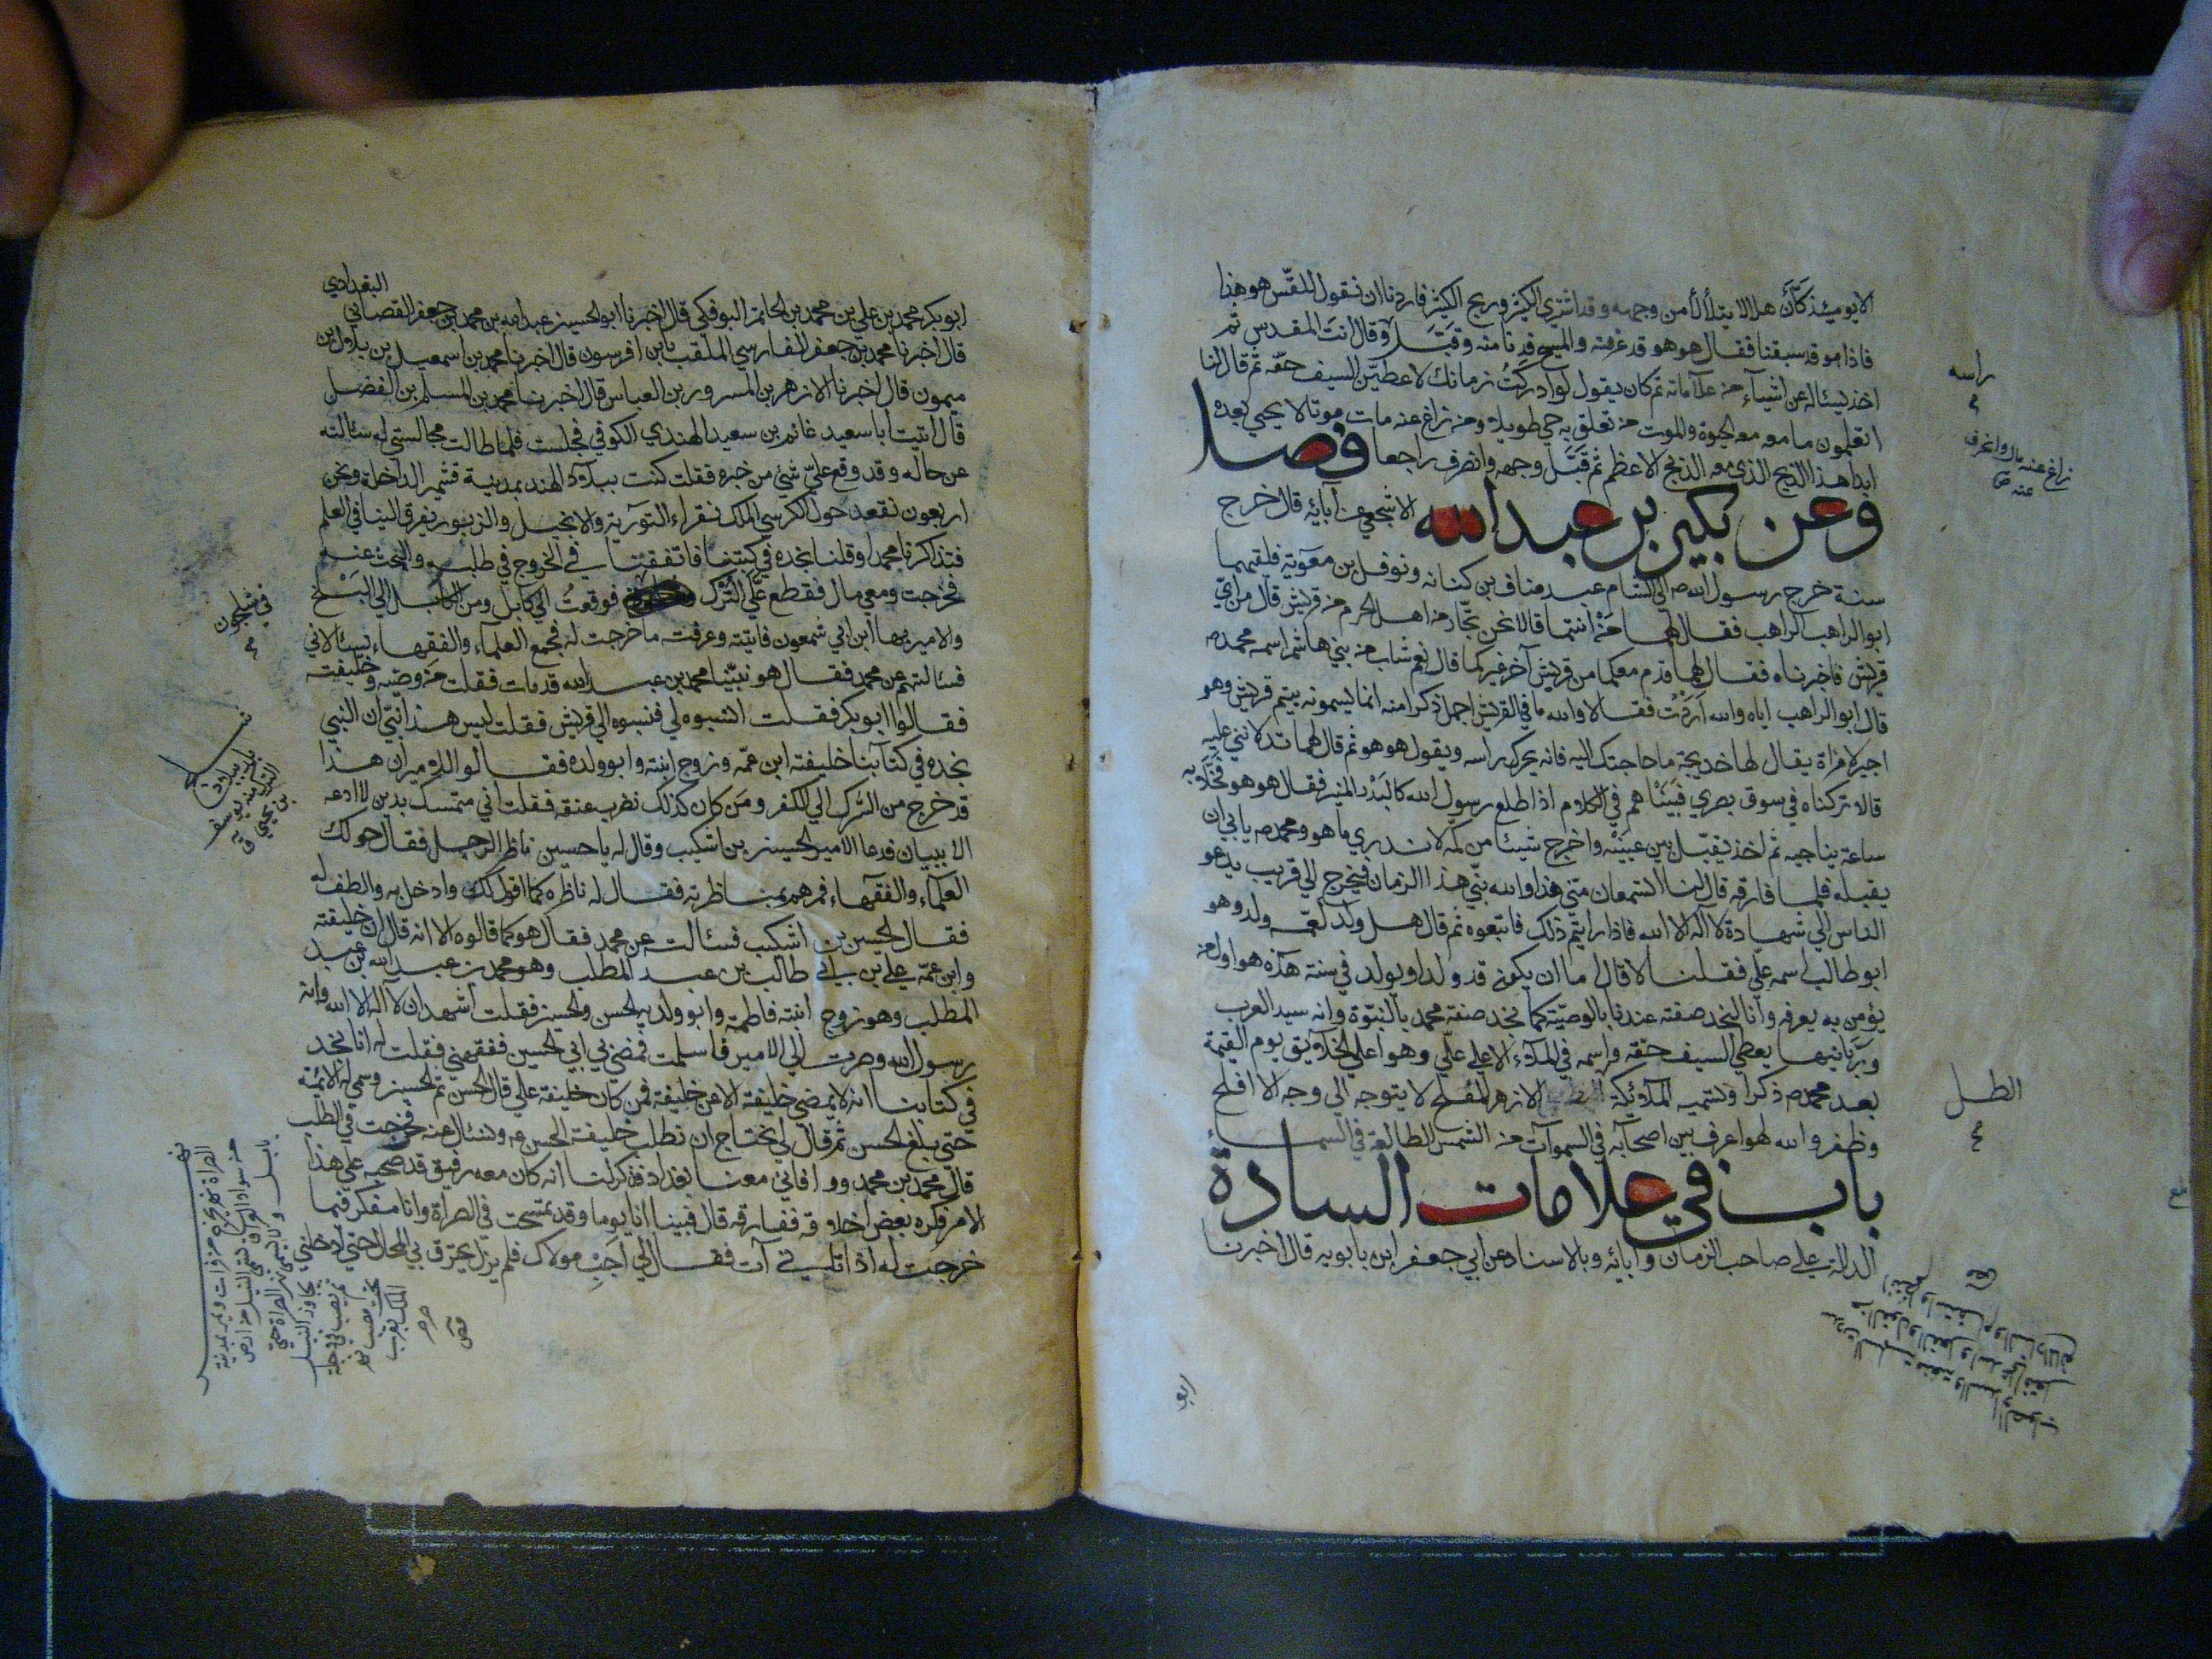 الا يومئذ كأن هلالا يتلألأ من وجهه وقد اشتري الكثير وربح الكثير فاردنا ان نقول للقس هو هذا
فاذا هو قد سبقنا فقال هو هو قد عرفته والمسيح فدنا منه وقبل وقال انت المقدس ثم
اخذ يسئاله عن اشيآء من علاماته ثم كان يقول لو ادركت زمانك لاعطين السيف حقه ثم قال لنا
اتعلمون ما معه معه الحيوة والموت من تعلق به حي طويلا ومن زاغ عنه مات موتا لا يحيي بعده
ابدا هذا الذبح الذي معه الذبح الاعظم ثم قبل وجهه وانصرف راجعا فصل
وعن بكير بن عبد الله الاشجعي عن آبائه قال خرج
سنة خرج رسول الله ص الي الشام عبد مناف بن كنانه ونوفل بن معوية فلقيهما
ابو الراهب الراهب فقال لهما من انتما قالا نحن تجار من اهل الحرم من قريش قال من اي
قريش فاخبرناه فقال لهما قدم معكما من قريش آخر غيركما قال نعم شاب من بني هاشم اسمه محمد ص
قال ابو الراهب اياه والله اردت فقالا والله ما في القريش اخمل ذكرا منه انما يسمونه بيتيم قريش وهو
اجير لامراة يقال لها خديجة ما حاجتك اليه فانه يحرك راسه ويقول هو هو ثم قال لهما تدلانني عليه
قالا تركناه في سوق بصري فبينا هم في الكلام اذا طلع رسول الله كالبدر المنير فقال هو هو فخلا به
ساعة يناجيه ثم اخذ يقبل بين عينيه واخرج شيئا من كمه لا ندري ما هو ومحمد ص يابي ان
يقبله فلما فارقه قال لنا التسمعان مني هذا والله نبي هذا الزمان فيخرج الي قريب يدعو
الناس الي شهادة لا اله الا الله فاذا رايتم ذلك فاتبعوه ثم قال هل ولد لعمه ولد وهو
ابو طالب اسمه علي فقلنا لا قال اما ان يكون قد ولد او يولد في سنة هذه هو اول من
يؤمن به يعرفه وانا لنجد صفته عندنا بالوصية كما نجد صفة محمد بالنبوة وانه سيد العرب
وربانيها يعطي السيف حقه واسمه في الملاء الاعلي علي وهو اعلي الخلآيق يوم القيمة
بعد محمد ص ذكرا وتسميه الملآئكة الازهر المفلح لا يتوجه الي وجه الا افلح
وظفر والله لهو اعرف بين اصحابه في السموات من الشمس الطالعة في السماء
باب في علامات السادة
الدالة علي صاحب الزمان وآبائه وبالاسناد عن ابي جعفر ابن بابويه قال اخبرنا
راسه
زاغ عنه مال وانحرف
عنه ص
الطل
البغدادي
ابو بكر محمد بن علي بن محمد بن الحاتم البوفكي قال اخبرنا ابو الحسين عبد الله بن محمد بن جعفر القصباني
قال اخبرنا محمد بن جعفر الفارسي الملقب بابن افرسون قال اخبرنا محمد بن اسمعيل بن بلال بن
ميمون قال اخبرنا الازهر بن المسرور بن العباس قال اخبرنا محمد بن المسلم بن الفضل
قال اتيت ابا سعيد غانم بن سعيد الهندي الكوفي فجلست فلما طالت مجالستي له سئالته
عن حاله وقد وقع علي شيئ من خبره فقلت كنت ببلاد الهند بمدينة قشمير الداخلة ونحن
اربعون نقعد حول الكرسي الملك نقراء التورية والانجيل والزبور يفرق الينا في العلم
فتذاكرنا محمدا وقلنا نجده في كتبنا فاتفقنا في الخروج في طلبه والبحث عنه
فخرجت ومعي مال فقطع علي الترك فوقعت الي كابل ومن الكابل الي البلخ
والامير بها ابن ابي شمعون فاتيته وعرفته ما خرجت له فجمع العلماء والفقهاء لسئالاني
فسئالتهم عن محمد فقال هو نبينا محمد بن عبد الله قد مات فقلت من وصيه وخليفته
فقالوا ابو بكر فقلت انسبوه لي فنسبوه الي قريش فقلت ليس هذا نبي ان النبي
نجده في كتابنا خليفته ابن عمه وزوج ابنته وابو ولده فقالوا للامير ان هذا
قد خرج من الشرك الي الكفر ومن كان كذلك نضرب عنقه فقلت اني متمسك بدين لا ادعه
الا ببيان فدعا الامير الحسين بن اشكيب وقال له يا حسين ناظر الرجل فقال حولك
العلماء والفقهاء فمرهم بمناظرته فقال له ناظره كما اقول لك وادخل به والطف له
فقال الحسين بن اشكيب فسئالته عن محمد فقال هو كما قالوه الا انه قال ان خليفته
وابن عمه علي بن ابي طالب بن عبد المطلب وهو محمد بن عبد الله بن عبد
المطلب وهو زوج ابنته فاطمة وابو ولديه الحسن والحسين فقلت اشهد ان لا اله الا الله وانه
رسول الله وصرت الي الامير فاسلمت فمضي بي الي الحسين ففقهني فقلت له انا نجد
في كتابنا انه لا يمضي خليفة الا عن خليفة فمن كان خليفة علي قال الحسن ثم الحسين وسمي لي الائمة
حتي بلغ الحسن ثم قال لي تحتاج ان تطلب خليفة الحسن ع وتسئال عنه فخرجت في الطلب
قال محمد بن محمد ووافاني معنا بغداد فذكر لنا انه كان معه رفيق قد صحبه علي هذا
الامر فكره بعض اخلاقه ففارقه قال فبينا انا يوما وقد تمسحت في الصراة وانا متفكر فيما
خرجت له اذ اتاني آت فقال لي اجب مولاك فلم يزل يخترق بي المحال حتي ادخلني